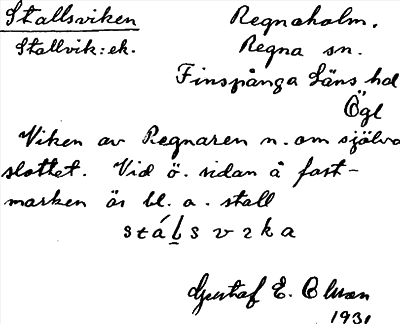 Stallsviken
Regnaholm.
Stallvik: ek.
Regna sn.
Finspånga Läns hd
Ögl
Viken av Regnaren n. om själva
slottet. Vid ö. sidan å fast-
marken är bl. a. stall
Gustaf E.
1931